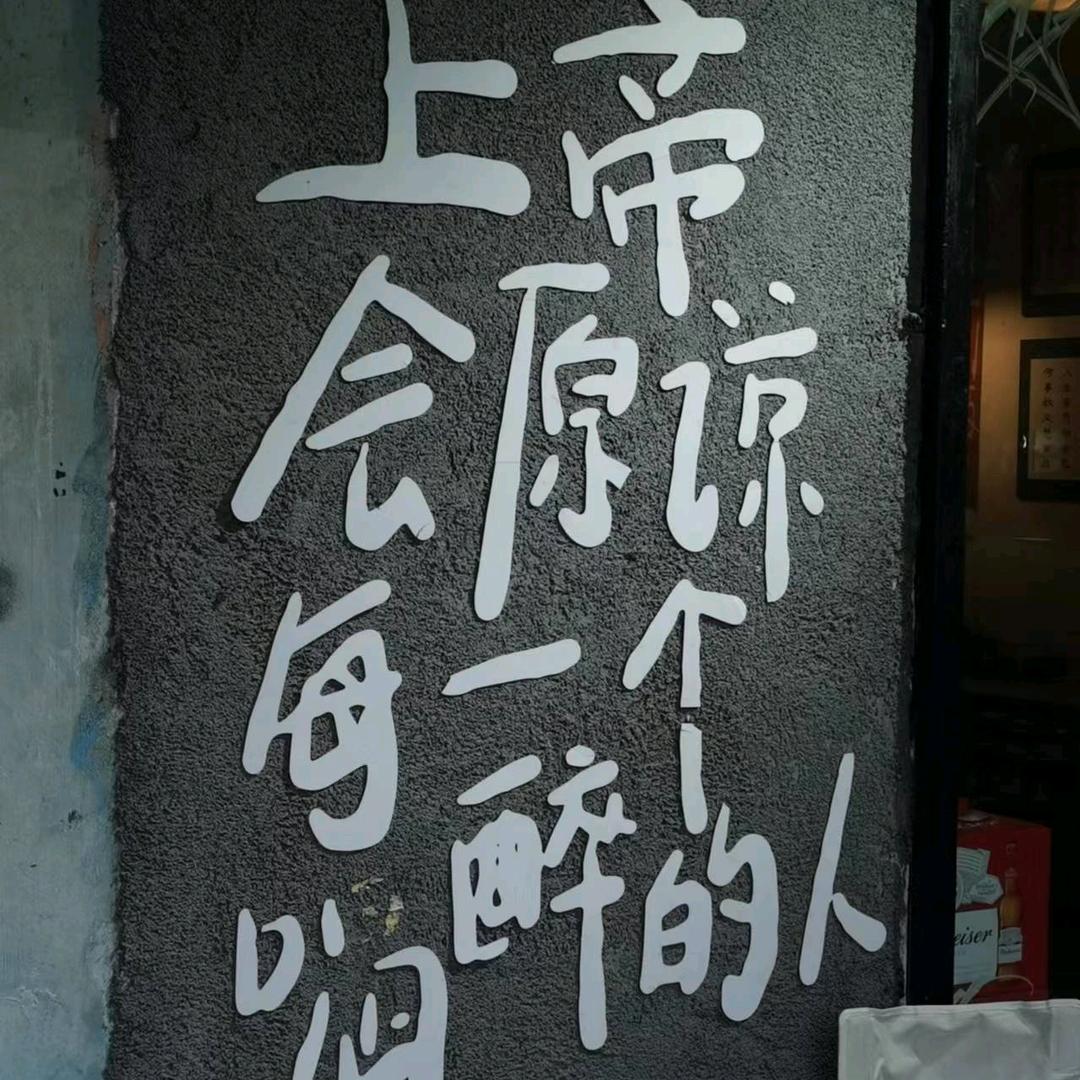 上帝
会原谅
每一个
喝醉的人
eiser